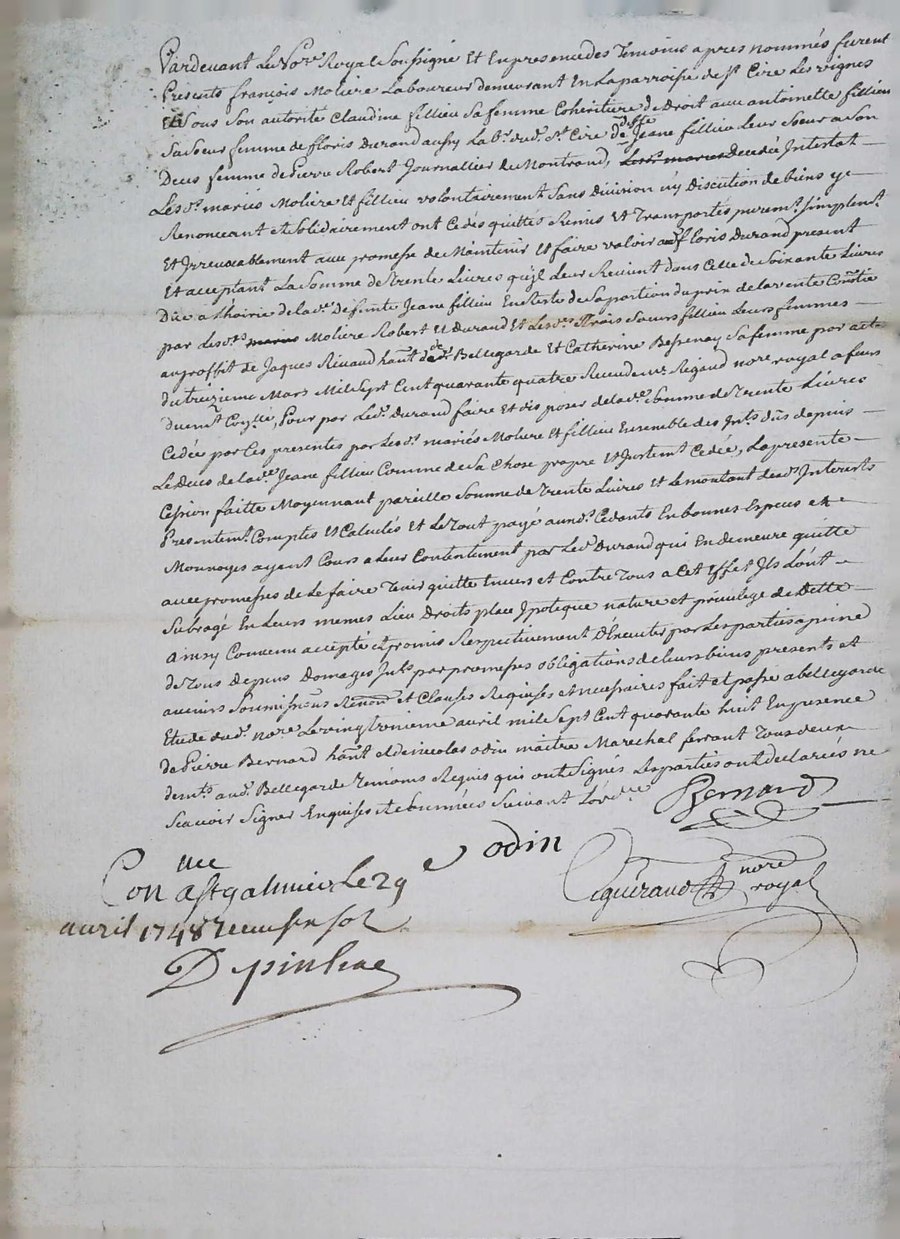 Pardevant Le Nore. Royal Soussigné Et En presence des Temoins apres nommés furent
Presents françois Moliere Laboureur demeurant En La parroisse de St. Cire Les vignes
Et Sous Son autorité Claudine fillieu Sa femme Cohéritiere de Droit avec antoinette fillieu
Sa Soeur femme de floris Durand aussy Lab.r dud. St. Cire de deffte Jeane fillieu Leur Soeur a Son
Deces femme de Pierre Robert Journallier de Montrond, decedée Intestat
Lesd.s mariés Moliere Et fillieu volontairement Sans division ny discution de biens y
Renonceant et Solidairement ont Cedés quittés Remis Et Transportés purem.t Simplem.t
Et Irrevocablement avec promesse de Maintenir Et faire valoir aud. floris Durand present
Et acceptant La Somme de Trente Livres qu'il Leur Revient dans Celle de Soixante Livres
Düe a L'hoirie de lad.e Defunte Jeane fillieu En Reste de Sa portion du prix de la vente
par Lesd.ts Moliere Robert Et Durand Et Lesd.s Trois Soeurs fillieu Leurs femmes
au proffit de Jaques Rivaud han.t de Bellegarde Et Catherine Bessenay Sa femme par acte
du treizieme Mars Mil Sept Cent quarante quatre Receu de Me Rigaud nore royal a feurs
Duem.t Pour par Led. Durand faire Et disposer de lad.e Somme de Trente Livres
Cedée par Ces presentes par Lesd.s mariés Moliere Et fillieu Ensemble des Int.ts Dûs depuis
Le Deces de lad.e Jeane fillieu Comme de Sa Chose propre Et Justem.t Cedée, La presente
Cession faitte Moyennant pareille Somme de Trente Livres Et Le montant desd.s Interests
Presentem.t Comptés Et Calculés Et Le Tout payé auxd. Cedants En bonnes Especes et
Monnoyes ayant Cours a Leur Contentement par Led. Durand qui En demeure quitte
avec promesses de Le faire Tenir quitte Envers et Contre Tous a Cet Effet Ils L'ont
Subrogé En Leurs memes Lieu Droits place Ipoteque nature et privilege de Dette
ainsy Convenu accepté et promis Respectivement D'Executer par Les parties a peine
de Tous Depens Domages Int.ts par promesses obligations de leurs biens presents et
avenirs Soumissions Renon. et Clauses Requises et necessaires fait et passé a bellegarde
Etude dud. nore. Le vingt avril mil Sept Cent quarante huit En presence
de Pierre Bernard han.t et de nicolas odin maitre Marechal ferrant Tous deux
dem.ts aud. Bellegarde Temoins Requis qui ont Signés Les parties ont declarées ne
Scavoir Signer Enquises et Suivant L'ord.ce
Bernard
odin
nore
royal
Con
a St galmier Le 29
avril 1748 Receu six sol